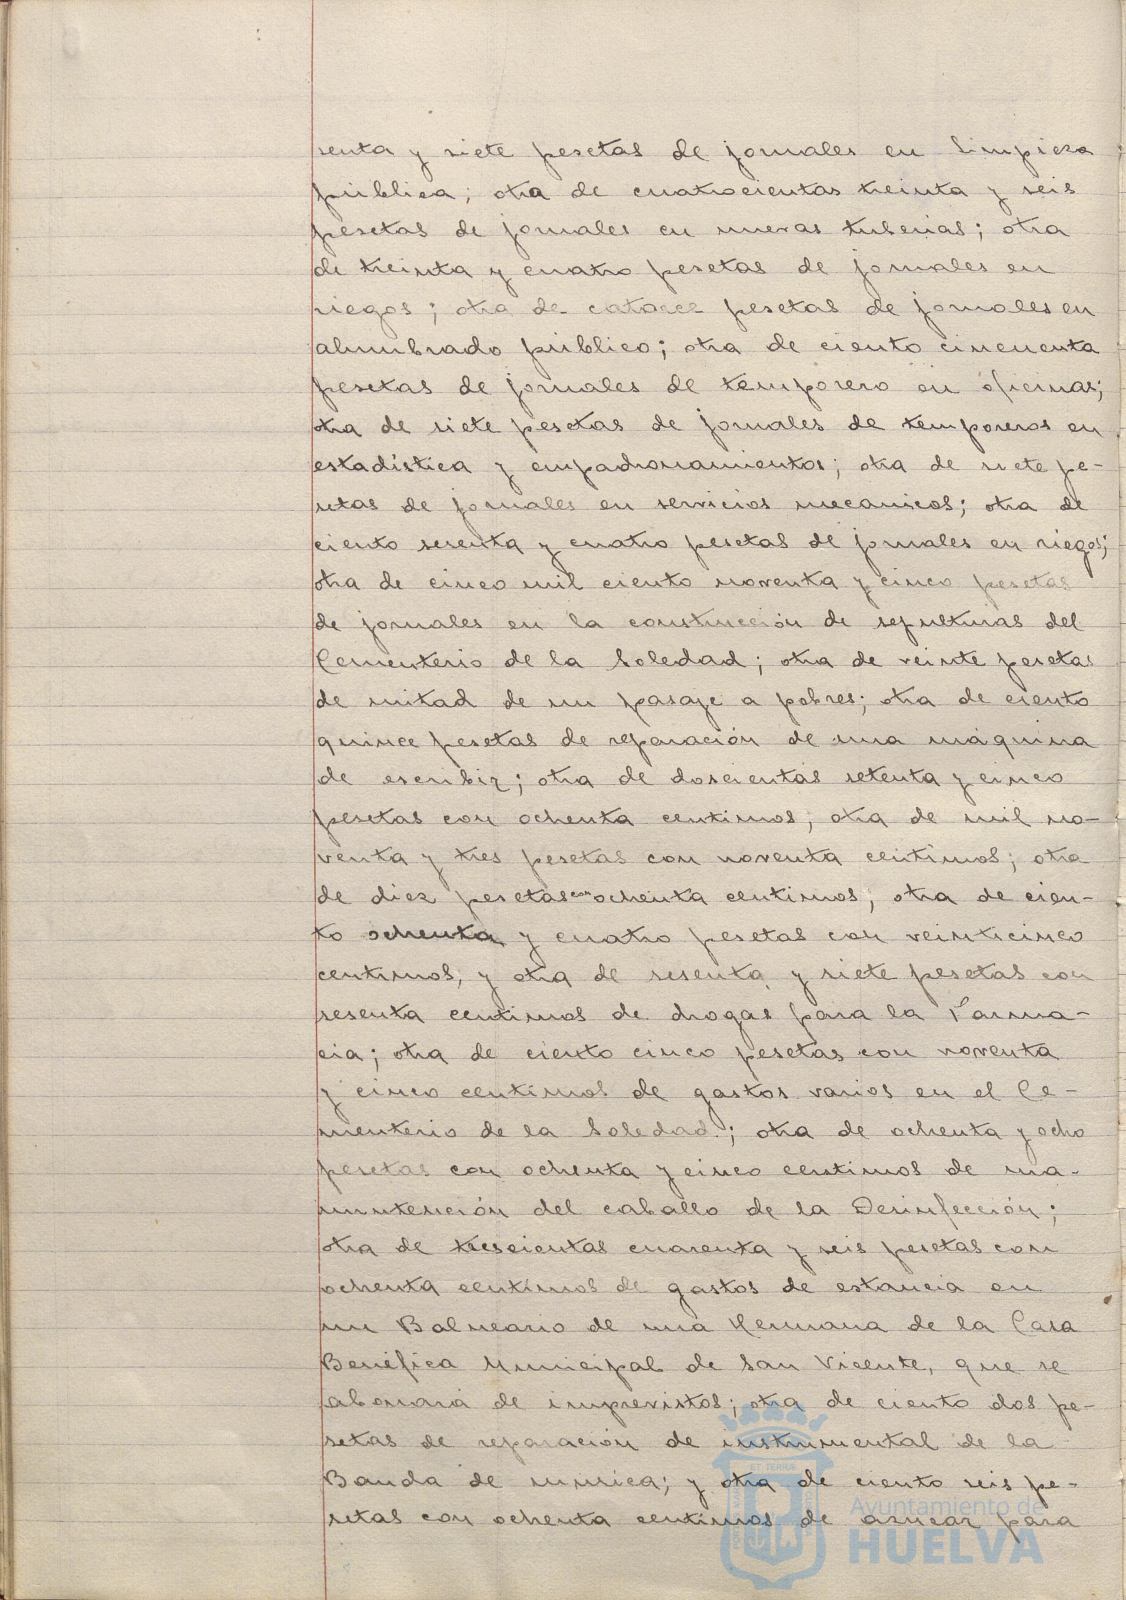 senta y siete pesetas de jornales en limpieza
pública; otra de cuatrocientas treinta y seis
pesetas de jornales en nuevas tuberias; otra
de treinta y cuatro pesetas de jornales en
riegos; otra de catorce pesetas de jornales en
alumbrado público; otra de ciento cincuenta
pesetas de jornales de temporero en oficinas;
otra de siete pesetas de jornales de temporeros en
estadística y empadronamientos; otra de siete pe-
setas de jornales en servicios mecanicos; otra de
ciento sesenta y cuatro pesetas de jornales en riegos;
otra de cinco mil ciento noventa y cinco pesetas
de jornales en la construcción de sepulturas del
Cementerio de la Soledad; otra de veinte pesetas
de mitad de un pasaje a pobres; otra de ciento
quince pesetas de reparación de una máquina
de escribir; otra de doscientas setenta y cinco
pesetas con ochenta centimos; otra de mil no-
venta y tres pesetas con noventa centimos; otra
de diez pesetas con ochenta centimos; otra de cien-
to ochenta y cuatro pesetas con veinticinco
centimos, y otra de sesenta y siete pesetas con
sesenta centimos de drogas para la Farma-
cia; otra de ciento cinco pesetas con noventa
y cinco centimos de gastos varios en el Ce-
menterio de la Soledad.; otra de ochenta y ocho
pesetas con ochenta y cinco centimos de ma-
nutención del caballo de la Desinfección;
otra de trescientas cuarenta y seis pesetas con
ochenta centimos de gastos de estancia en
un Balneario de una Hermana de la Casa
Benéfica Municipal de San Vicente, que se
abonará de imprevistos; otra de ciento dos pe-
setas de reparación de instrumental de la
Banda de música; y otra de ciento seis pe-
setas con ochenta centimos de azucar para
Ayuntamiento de
HUELVA